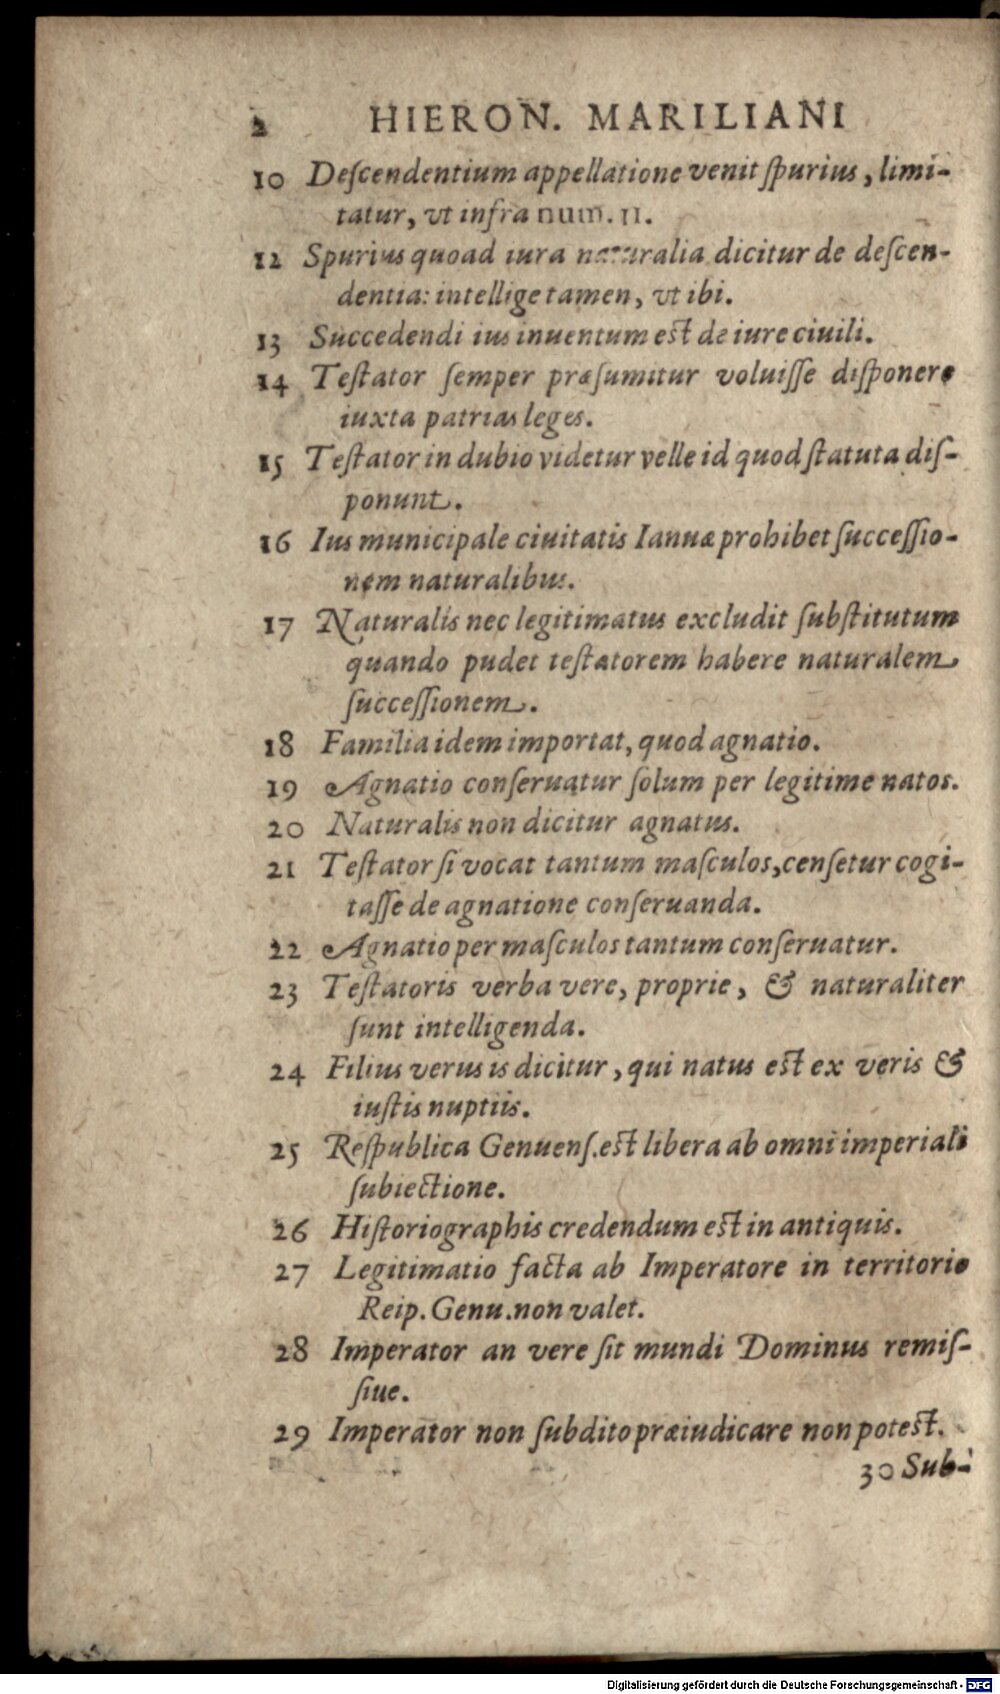 2 HIERON. MARILIANI
10 Deſcendentium appellatione venit ſpurius, limi-
tatur, vt infra num. 11.
12 Spurius quoad iura naturalia dicitur de deſcen-
dentia: intellige tamen, vt ibi.
13 Succedendi ius inuentum eſt de iure ciuili.
14 Teſtator ſemper præſumitur voluiſſe diſponere
iuxta patrias leges.
15 Teſtator in dubio videtur velle id quod ſtatuta diſ-
ponunt.
16 Ius municipale ciuitatis Ianuæ prohibet ſucceſſio-
nem naturalibus.
17 Naturalis nec legitimatus excludit ſubſtitutum
quando pudet teſtatorem habere naturalem
ſucceſſionem.
18 Familia idem importat, quod agnatio.
19 Agnatio conſeruatur ſolum per legitime natos.
20 Naturalis non dicitur agnatus.
21 Teſtator ſi vocat tantum maſculos, cenſetur cogi-
taſſe de agnatione conſeruanda.
22 Agnatio per maſculos tantum conſeruatur.
23 Teſtatoris verba vere, proprie, & naturaliter
ſunt intelligenda.
24 Filius verus is dicitur, qui natus eſt ex veris &
iuſtis nuptiis.
25 Reſpublica Genuenſ. eſt libera ab omni imperiali
ſubiectione.
26 Hiſtoriographis credendum eſt in antiquis.
27 Legitimatio facta ab Imperatore in territorio
Reip. Genu. non valet.
28 Imperator an vere ſit mundi Dominus remiſ-
ſiue.
29 Imperator non ſubdito præiudicare non poteſt.
30 Sub-
Digitalisierung gefördert durch die Deutsche Forschungsgemeinschaft - DFG